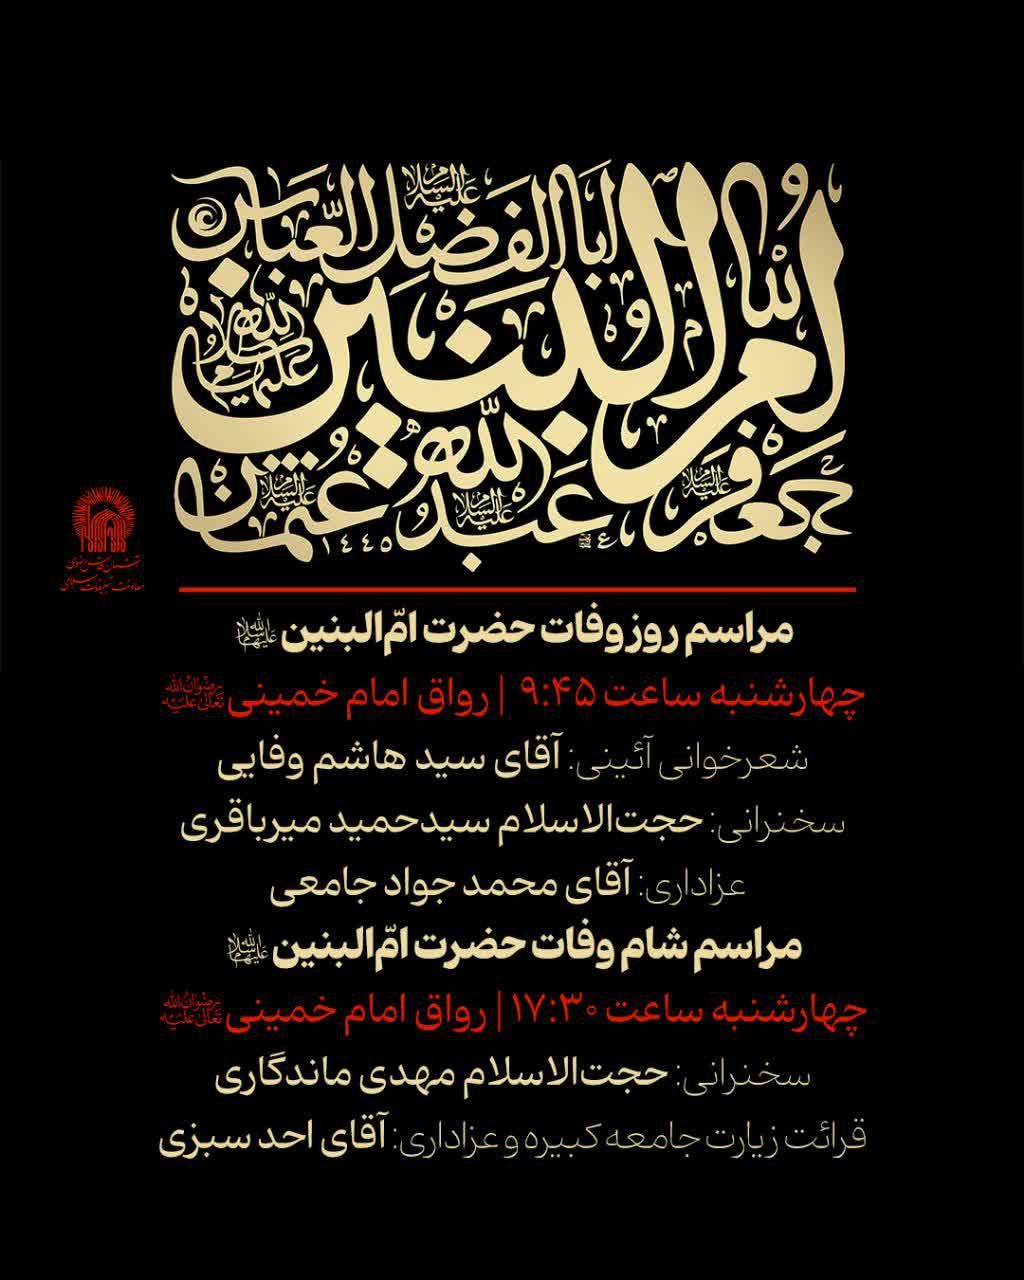 ام البنین
و
ابا الفضل العباس علیه السلام
سلام الله علیهم
جعفر علیه السلام
عبد الله علیه السلام
عثمان علیه السلام
۱۴۴۵
مراسم روز وفات حضرت امّ‌البنین سلام‌الله علیها
چهارشنبه ساعت ۹:۴۵ | رواق امام خمینی رضوان‌الله تعالی علیه
شعرخوانی آئینی: آقای سید هاشم وفایی
سخنرانی: حجت‌الاسلام سیدحمید میرباقری
عزاداری: آقای محمد جواد جامعی
مراسم شام وفات حضرت امّ‌البنین سلام‌الله علیها
چهارشنبه ساعت ۱۷:۳۰ | رواق امام خمینی رضوان‌الله تعالی علیه
سخنرانی: حجت‌الاسلام مهدی ماندگاری
قرائت زیارت جامعه کبیره و عزاداری: آقای احد سبزی
آستان قدس رضوی
معاونت تبلیغات اسلامی